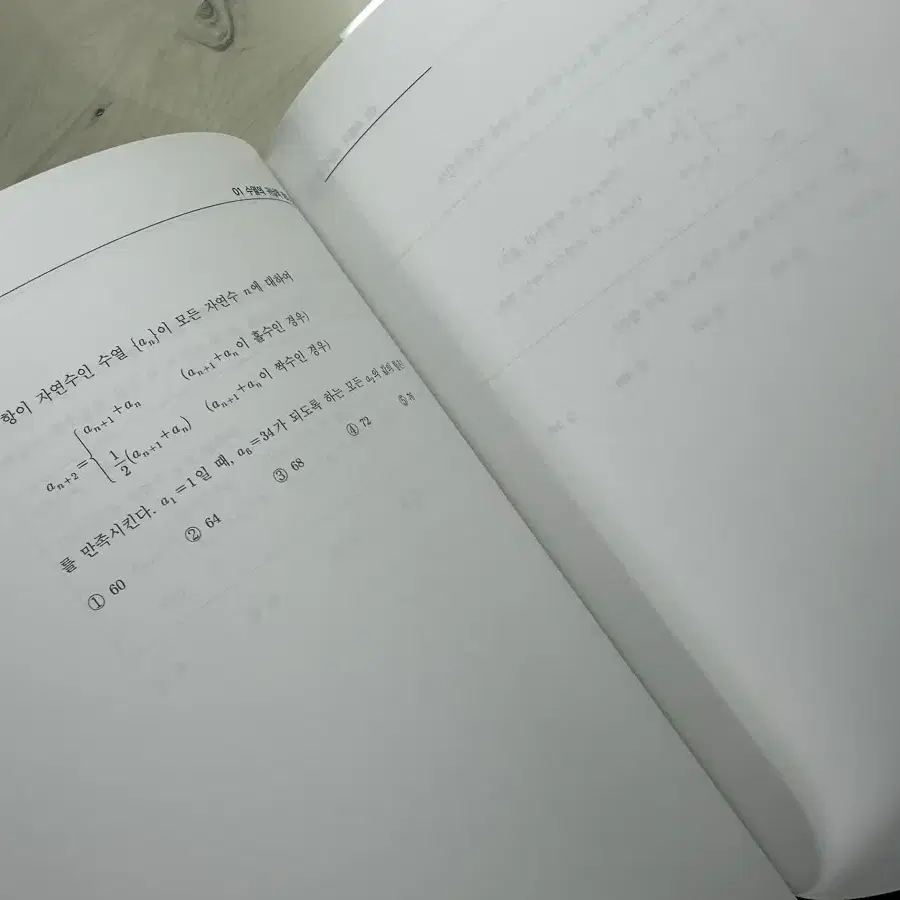 01 수열의
항이 자연수인 수열 {aₙ}이 모든 자연수 n에 대하여
aₙ₊₂={ aₙ₊₁+aₙ (aₙ₊₁+aₙ이 홀수인 경우)
½(aₙ₊₁+aₙ) (aₙ₊₁+aₙ이 짝수인 경우)
를 만족시킨다. a₁=1일 때, a₆=34가 되도록 하는 모든 a₂의 값의 합은?
① 60 ② 64 ③ 68 ④ 72 ⑤